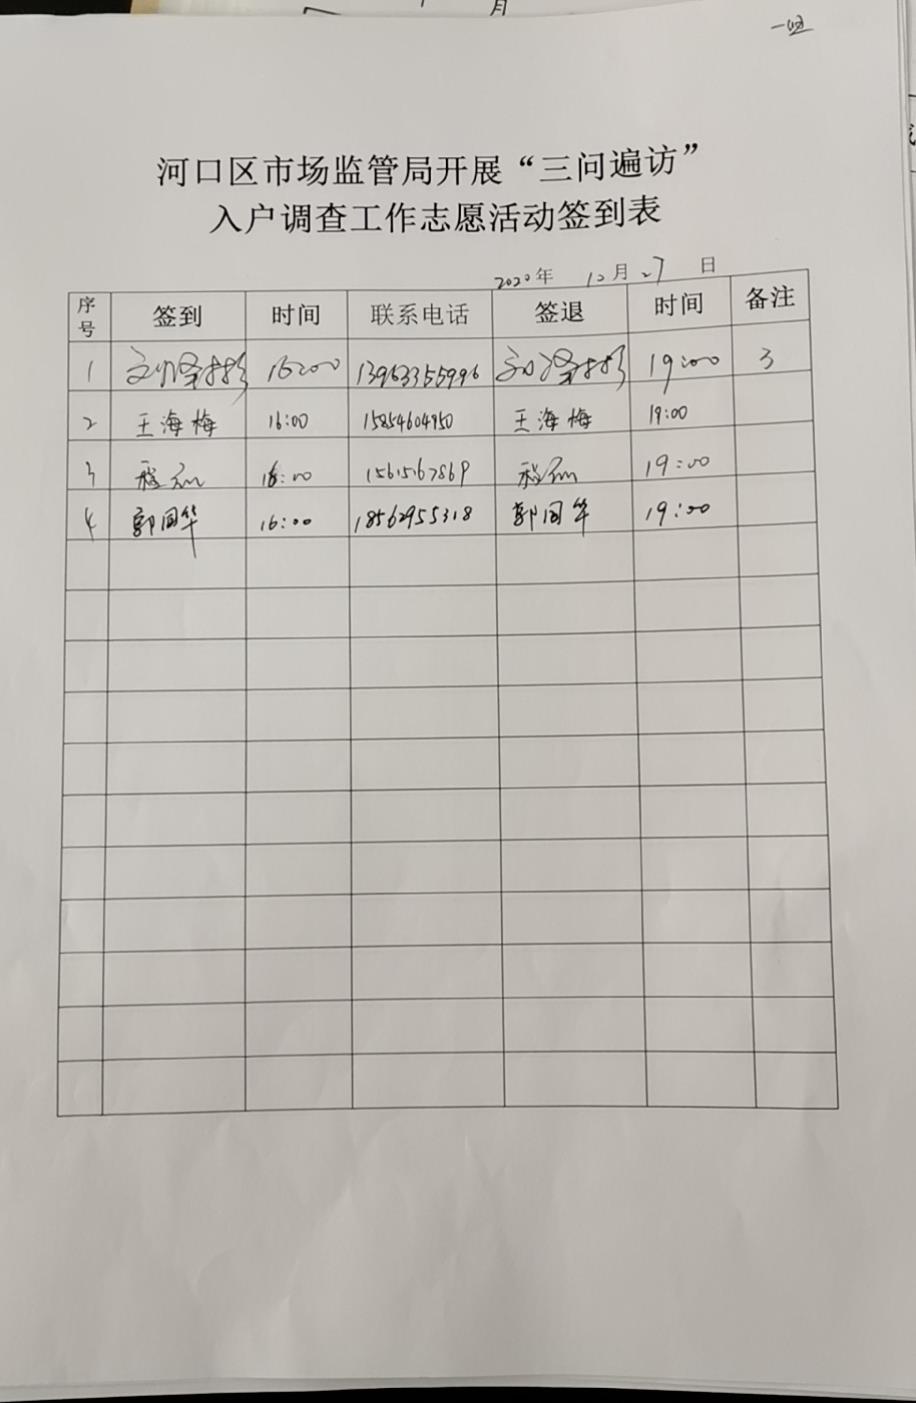 河口区市场监管局开展“三问遍访”
入户调查工作志愿活动签到表
2020年 10月27日
序号 签到 时间 联系电话 签退 时间 备注
1 16:00 13963355996 19:00 3
2 王海梅 16:00 15854604950 王海梅 19:00
3 16:00 15615167869 19:00
4 郭同华 16:00 18562955318 郭同华 19:00